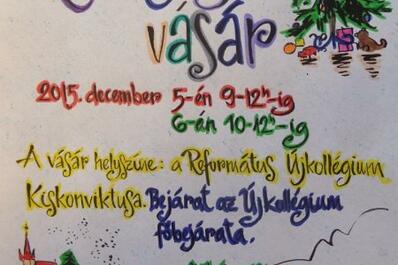 vásár
2015. december 5-én 9-12ʰ-ig
6-án 10-12ʰ-ig
A vásár helyszíne: a Református Újkollégium
Kiskonviktusa. Bejárat az Újkollégium
főbejárata.